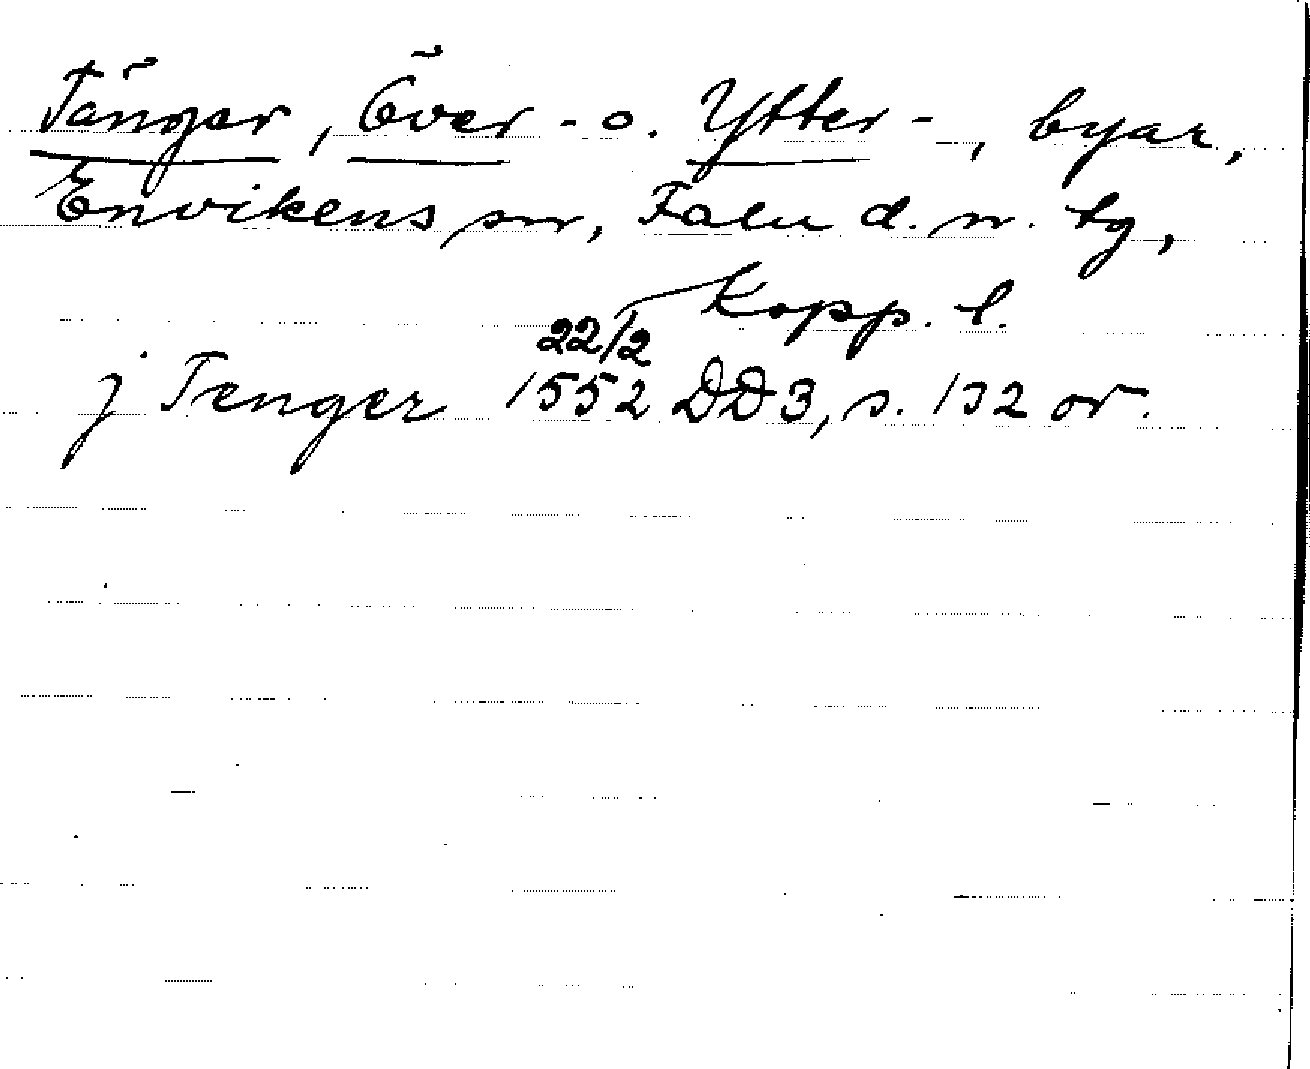 Tänger, Över- o. Ytter-, byar,
Envikens sn, Falu d. n. tg,
Kopp. l.
j Tenger 22/2 1552 DD 3, s. 132 or.